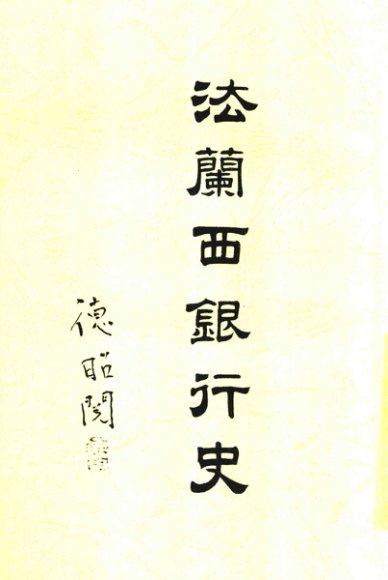 法蘭西銀行史
德昭閱